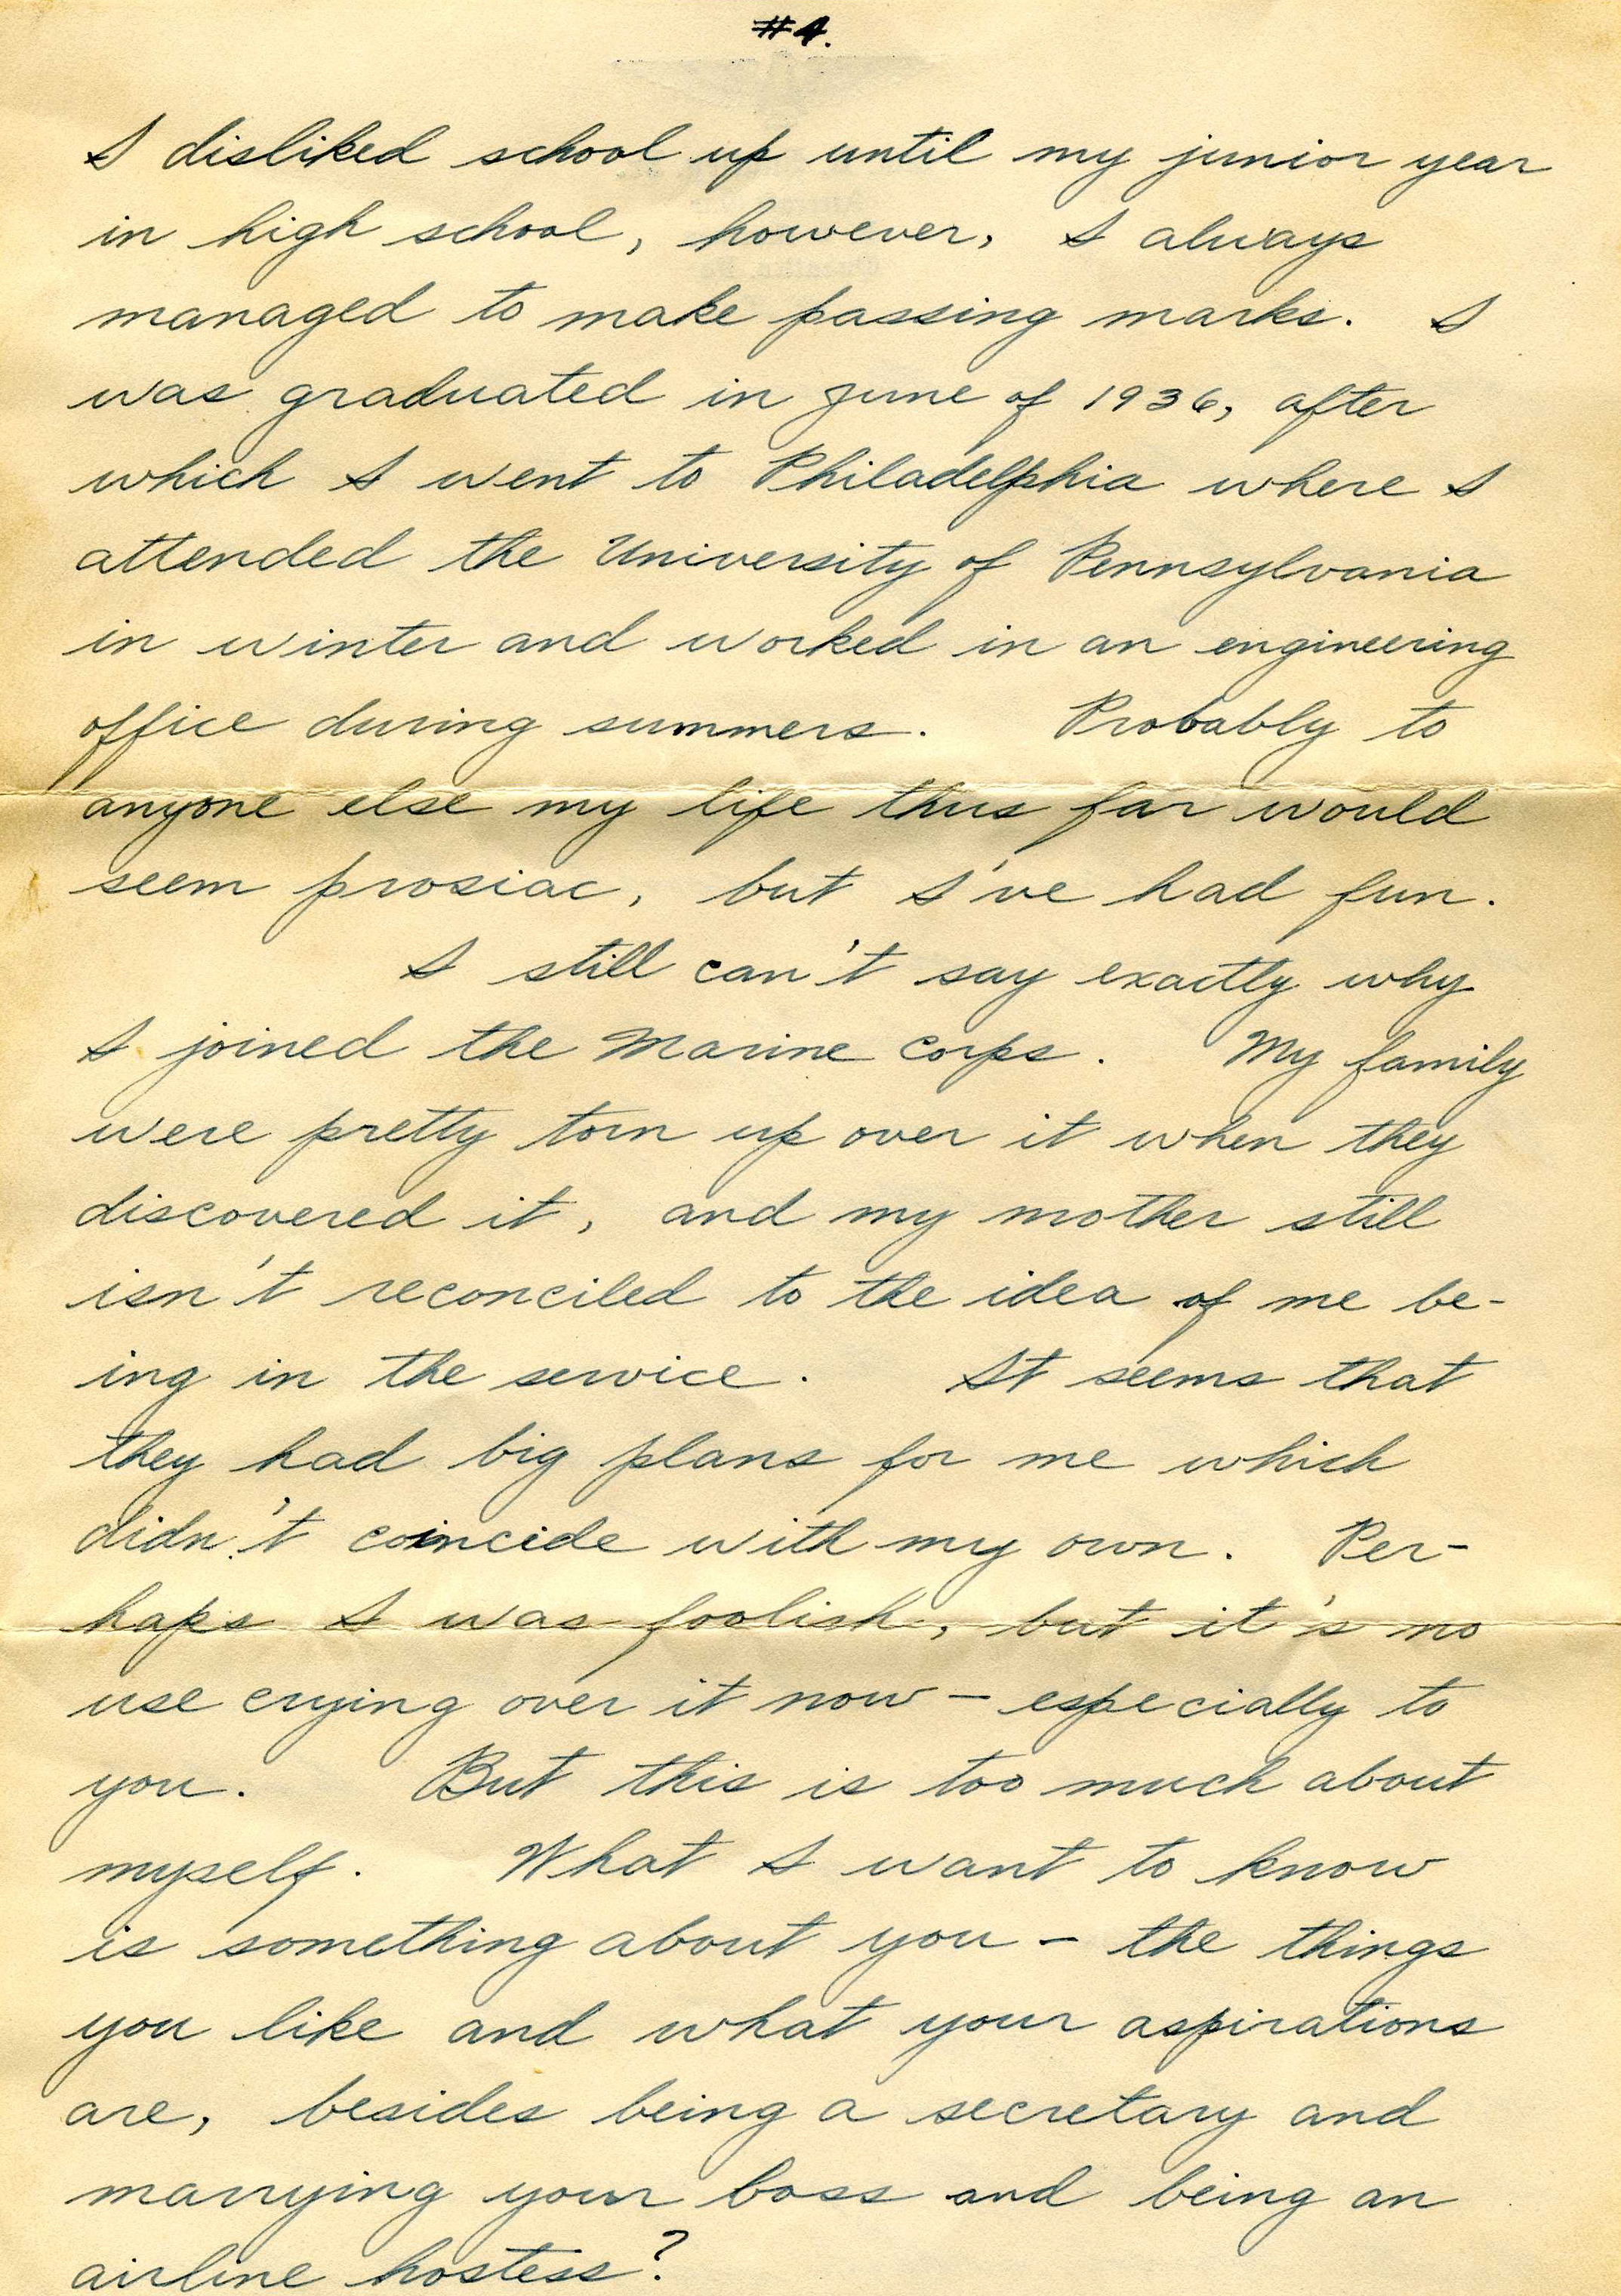 #4.
I disliked school up until my junior year
in high school, however, I always
managed to make passing marks. I
was graduated in June of 1936, after
which I went to Philadelphia where I
attended the University of Pennsylvania
in winter and worked in an engineering
office during summers. Probably to
anyone else my life thus far would
seem prosiac, but I've had fun.
I still can't say exactly why
I joined the Marine Corps. My family
were pretty torn up over it when they
discovered it, and my mother still
isn't reconciled to the idea of me be-
ing in the service. It seems that
they had big plans for me which
didn't coincide with my own. Per-
haps I was foolish, but it's no
use crying over it now - especially to
you. But this is too much about
myself. What I want to know
is something about you - the things
you like and what your aspirations
are, besides being a secretary and
marrying your boss and being an
airline hostess?